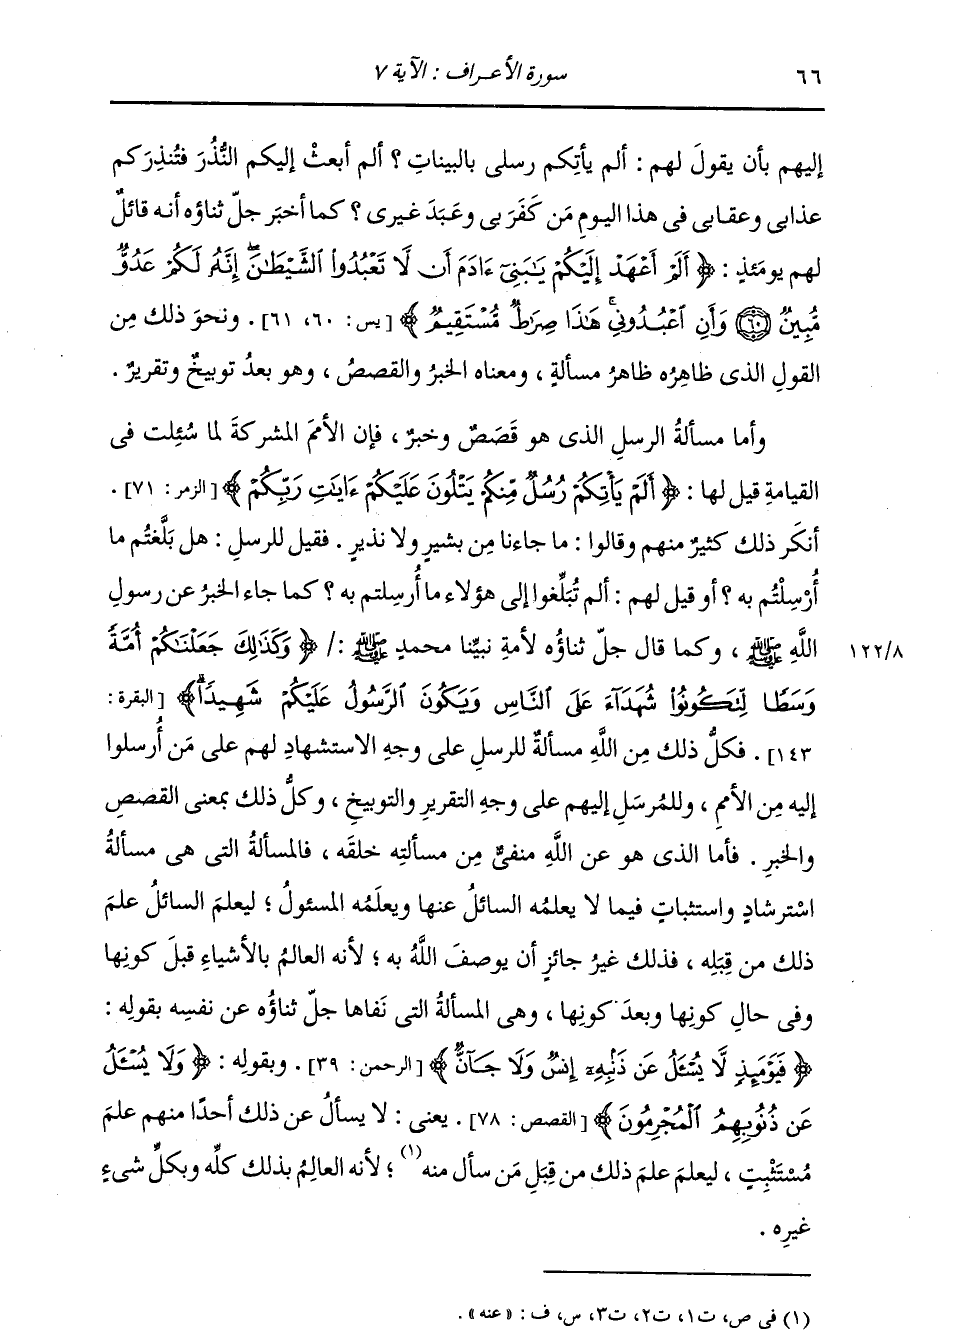 ٦٦
سورة الأعراف : الآية ٧
إليهم بأن يقولَ لهم : ألم يأتِكم رسلى بالبيناتِ ؟ ألم أبعثْ إليكم النُّذُرَ فتُنذِرَكم
عذابى وعقابى فى هذا اليومِ مَن كَفَرَ بى وعَبَدَ غيرى ؟ كما أخبَر جلّ ثناؤه أنه قائلٌ
لهم يومَئذٍ : ﴿ أَلَمْ أَعْهَدْ إِلَيْكُمْ يَـٰبَنِىٓ ءَادَمَ أَن لَّا تَعْبُدُوا۟ ٱلشَّيْطَـٰنَ ۖ إِنَّهُۥ لَكُمْ عَدُوٌّ
مُّبِينٌ ﴿٦٠﴾ وَأَنِ ٱعْبُدُونِى ۚ هَـٰذَا صِرَٰطٌ مُّسْتَقِيمٌ ﴾ [يس : ٦٠، ٦١] . ونحوَ ذلك مِن
القولِ الذى ظاهِرُه ظاهرُ مسألةٍ ، ومعناه الخبرُ والقصصُ ، وهو بعدُ توبيخٌ وتقريرٌ .
وأما مسألةُ الرسلِ الذى هو قَصَصٌ وخبرٌ ، فإن الأممَ المشركةَ لما سُئِلت فى
القيامةِ قيل لها : ﴿ أَلَمْ يَأْتِكُمْ رُسُلٌ مِّنكُمْ يَتْلُونَ عَلَيْكُمْ ءَايَـٰتِ رَبِّكُمْ ﴾ [الزمر : ٧١] .
أنكَر ذلك كثيرٌ منهم وقالوا : ما جاءنا مِن بشيرٍ ولا نذيرٍ . فقيل للرسلِ : هل بَلَّغتُم ما
أُرْسِلْتُم به ؟ أو قيل لهم : ألم تُبَلِّغوا إلى هؤلاء ما أُرسِلتم به ؟ كما جاء الخبرُ عن رسولِ
اللَّهِ ﷺ ، وكما قال جلّ ثناؤُه لأمةِ نبيِّنا محمدٍ ﷺ :/ ﴿ وَكَذَٰلِكَ جَعَلْنَـٰكُمْ أُمَّةً
١٢٢/٨
وَسَطًا لِّتَكُونُوا۟ شُهَدَآءَ عَلَى ٱلنَّاسِ وَيَكُونَ ٱلرَّسُولُ عَلَيْكُمْ شَهِيدًا ۗ ﴾ [البقرة :
١٤٣] . فكلُّ ذلك مِن اللَّهِ مسألةٌ للرسلِ على وجهِ الاستشهادِ لهم على مَن أُرسلوا
إليه مِن الأممِ ، وللمُرسَلِ إليهم على وجهِ التقريرِ والتوبيخِ ، وكلُّ ذلك بمعنى القصصِ
والخبرِ . فأما الذى هو عن اللَّهِ منفىٌّ مِن مسألتِه خلقَه ، فالمسألةُ التى هى مسألةُ
اسْترشادٍ واستثباتٍ فيما لا يعلمُه السائلُ عنها ويعلَمُه المسئولُ ؛ ليعلمَ السائلُ علمَ
ذلك من قِبَلِه ، فذلك غيرُ جائزٍ أن يوصفَ اللَّهُ به ؛ لأنه العالمُ بالأشياءِ قبلَ كونِها
وفى حالِ كونِها وبعدَ كونِها ، وهى المسألةُ التى نَفاها جلّ ثناؤُه عن نفسِه بقولِه :
﴿ فَيَوْمَئِذٍ لَّا يُسْـَٔلُ عَن ذَنۢبِهِۦٓ إِنسٌ وَلَا جَآنٌّ ﴾ [الرحمن : ٣٩] . وبقولِه : ﴿ وَلَا يُسْـَٔلُ
عَن ذُنُوبِهِمُ ٱلْمُجْرِمُونَ ﴾ [القصص : ٧٨] . يعنى : لا يسألُ عن ذلك أحدًا منهم علمَ
مُسْتَثْبِتٍ ، ليعلمَ علمَ ذلك من قِبَلِ مَن سأل منه(١) ؛ لأنه العالِمُ بذلك كلِّه وبكلِّ شىءٍ
غيرِه .
(١) فى ص، ت١، ت٢، ت٣، س، ف : «عنه» .